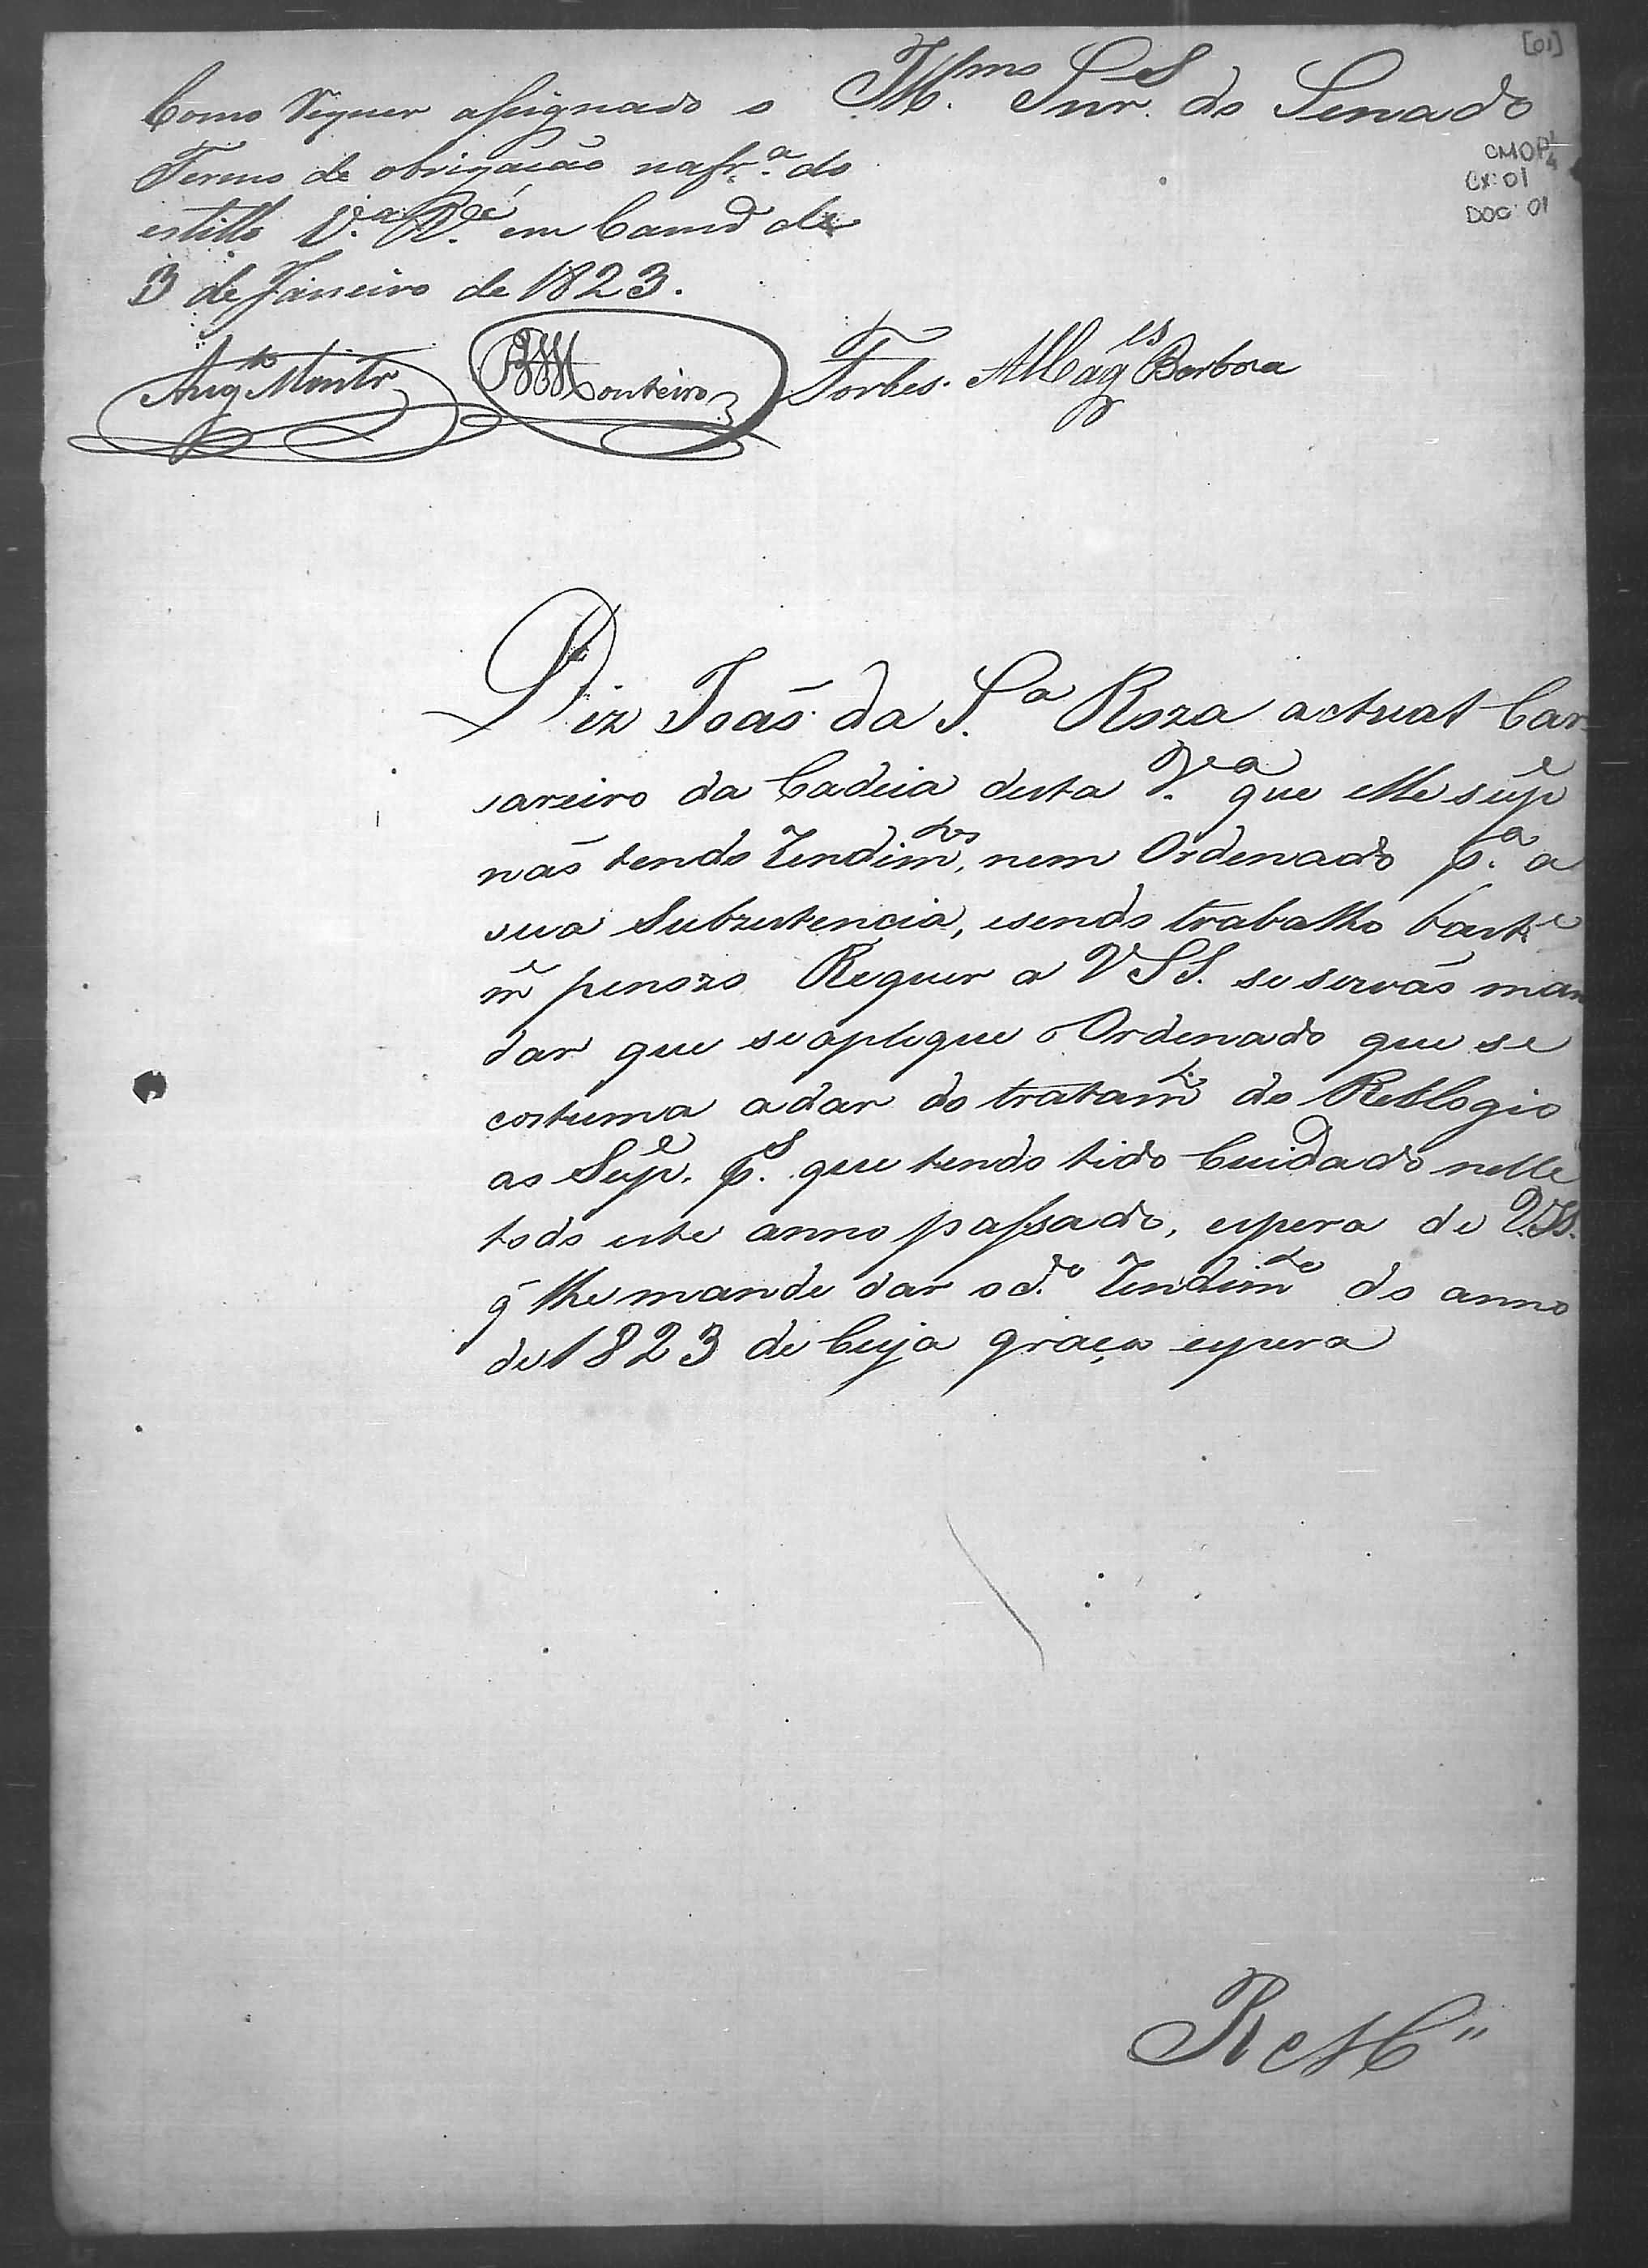 [01]
Illmos Snrs. do Senado
CMOP 1/4
Cx: 01
DOC: 01
Como Requer assignado o
Termo de obrigação na fra. do
estillo Va. Ra. em Camr. de
3 de Janeiro de 1823.
Augto Montr. Monteiro Torbes. Mages Barboza
Diz João da Sa. Roza actual Car
sareiro da Cadeia desta Va. que elle supe
não tendo rendimtos, nem Ordenado pa. a
sua Subzistencia, esendo trabalho baste
me penozo Requer a VSS. se servão man
dar que se aplique o Ordenado que se
costuma a dar do tratamto do Rellogio
ao Supe. ps. que tendo tido Cuidado nelle
todo este anno passado, espera de V.SS.
q̃ lhe mande dar o do. rendimto do anno
de 1823 de Cuja graça espera
R M